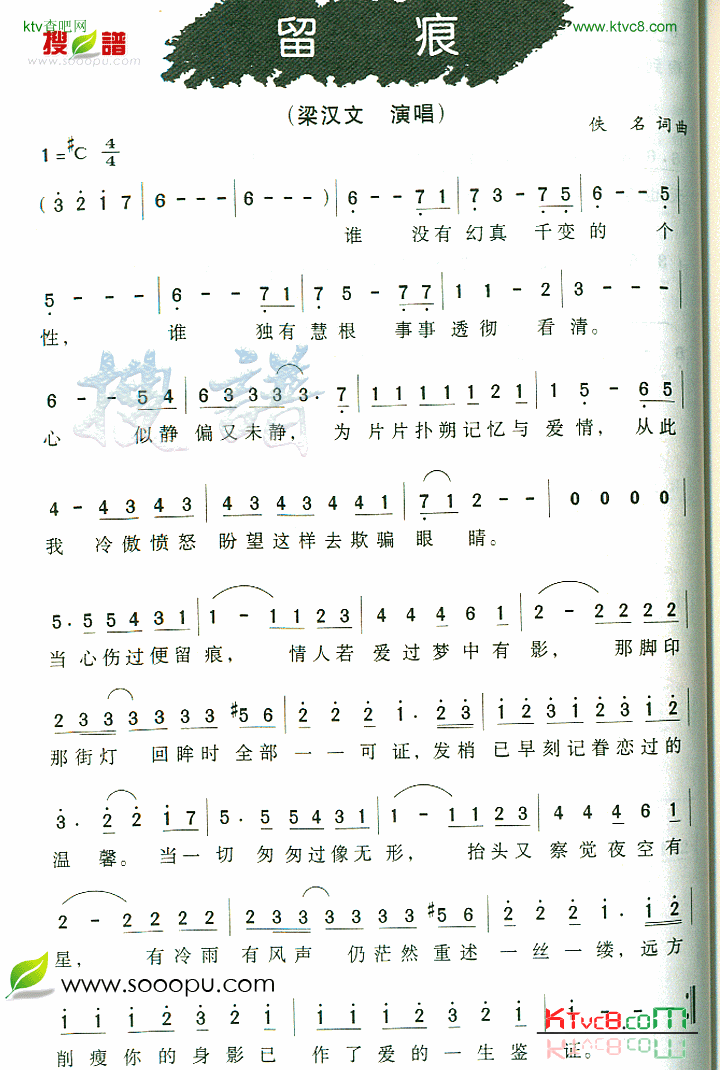 ktv杳吧网 www.ktvc8.com
搜谱
www.sooopu.com
留 痕
(梁汉文 演唱)
佚 名 词曲
1=#C 4/4
(3 2 1 7 | 6 - - - | 6 - - - ) | 6 - - 7 1 | 7 3 - 7 5 | 6 - - 5 |
谁 没有 幻真 千变 的 个
5 - - - | 6 - - 7 1 | 7 5 - 7 7 | 1 1 - 2 | 3 - - - |
性, 谁 独有 慧根 事事 透彻 看清。
6 - - 5 4 | 6 3 3 3 3 3 · 7 | 1 1 1 1 1 2 1 2 | 1 5 - 6 5 |
心 似静 偏又未静, 为 片片扑朔记忆与 爱情, 从此
4 - 4 3 4 3 | 4 3 4 3 4 4 1 | 7 1 2 - - | 0 0 0 0 |
我 冷傲愤怒 盼望这样去欺骗 眼 睛。
5 · 5 5 4 3 1 | 1 - 1 1 2 3 | 4 4 4 6 1 | 2 - 2 2 2 2 |
当 心伤过便留 痕, 情人若 爱过梦中有 影, 那脚印
2 3 3 3 3 3 3 #5 6 | 2 2 2 1 · 2 3 | 3 1 2 3 1 2 3 1 2 |
那街灯 回眸时 全部 一 一 可 证,发梢 已早刻记眷恋过的
3 · 2 2 1 7 | 5 · 5 5 4 3 1 | 1 - 1 1 2 3 | 4 4 4 6 1 |
温 馨。 当一 切 匆匆过像无 形, 抬头又 察觉夜空有
2 - 2 2 2 2 | 2 3 3 3 3 3 3 #5 6 | 2 2 2 1 · 1 2 |
星, 有冷雨 有风声 仍茫然重述 一 丝 一 缕,远方
www.sooopu.com
1 1 1 1 2 3 2 1 | 1 1 1 2 3 2 1 | 1 - - - :|
KTvc8.com
削 瘦 你 的 身 影 已 作 了 爱 的 一 生 鉴 证。